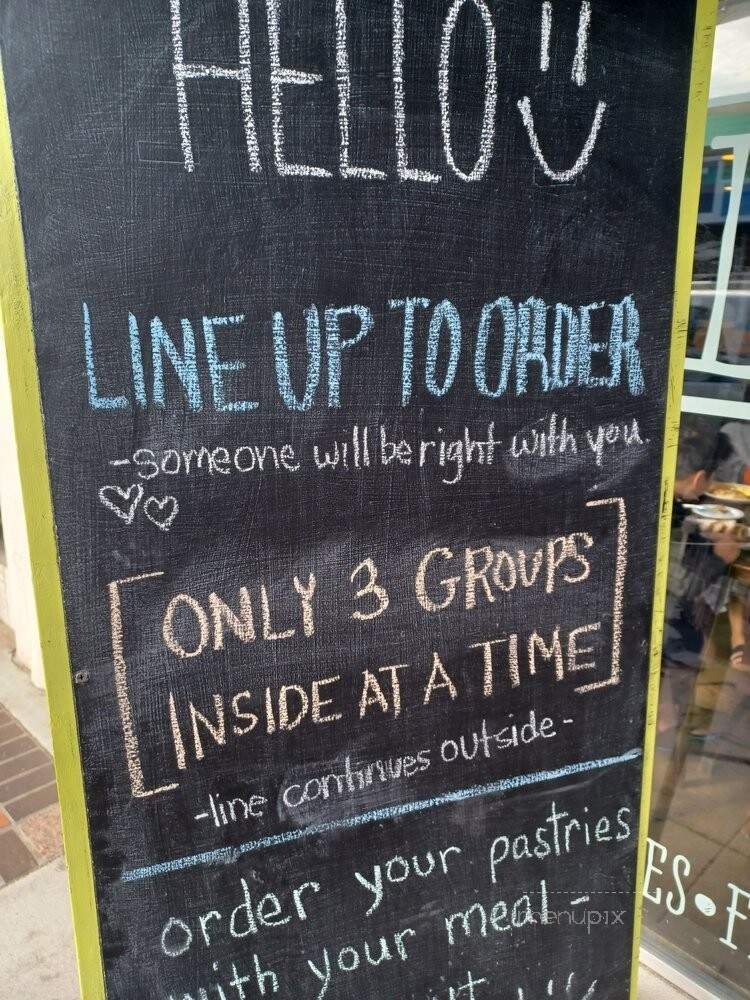 HELLO
LINE UP TO ORDER
-someone will be right with you.
ONLY 3 GROUPS
INSIDE AT A TIME
-line continues outside-
order your pastries
with your meal-
menupix
ES•F